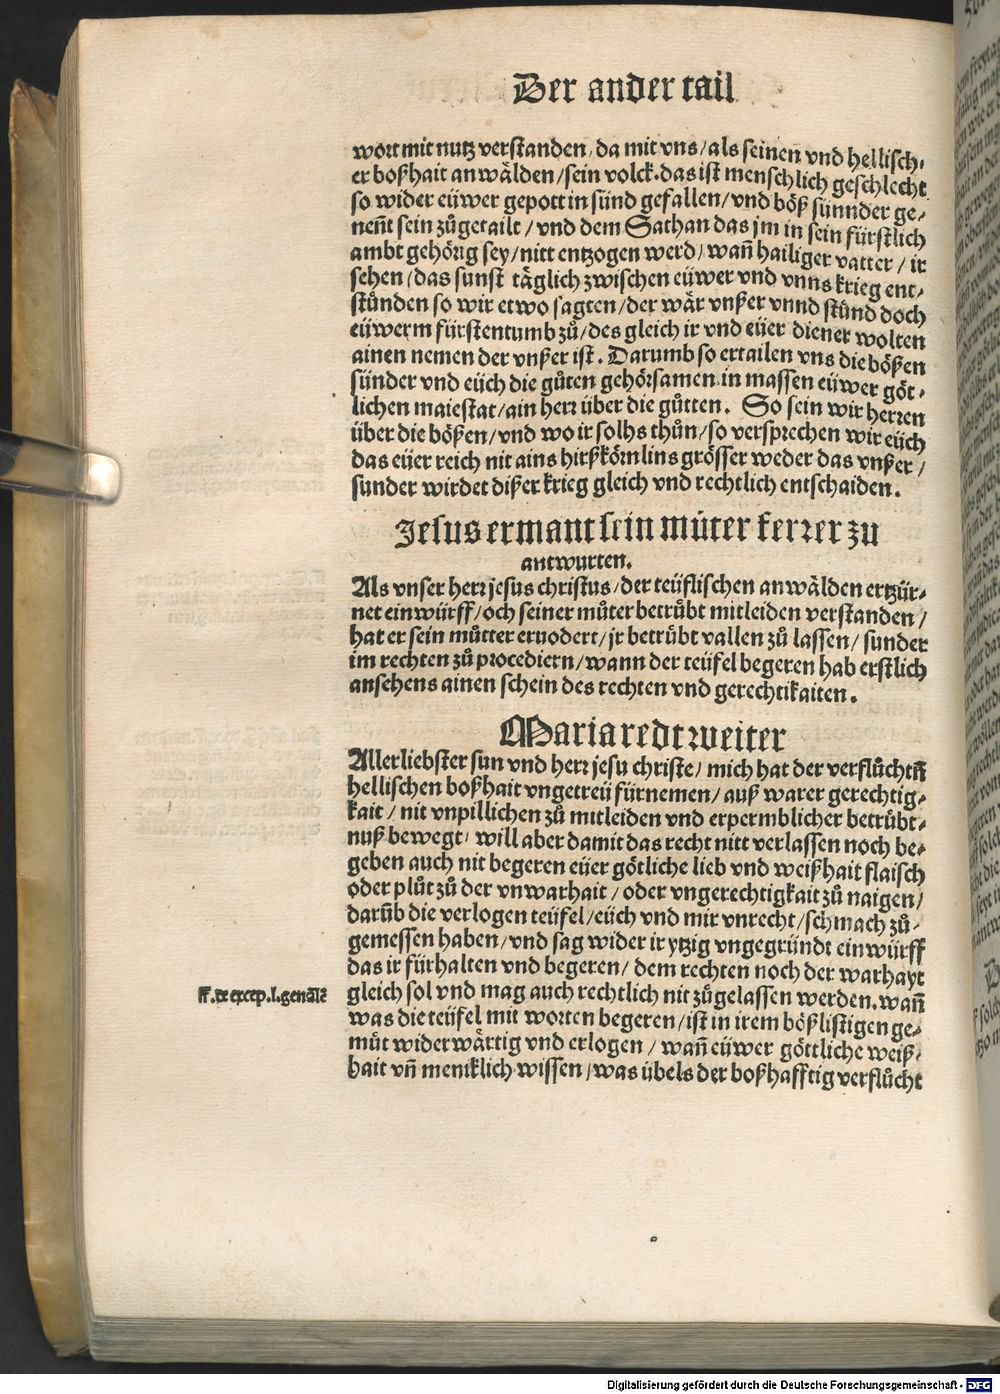 Der ander tail
wort mit nutz verstanden, da mit vns/als seinen vnd hellisch⸗
er boßhait anwälden/sein volck. das ist menschlich geschlecht
so wider eüwer gepott in sünd gefallen/vnd böß sünnder ge⸗
neñt sein zůgetailt/vnd dem Sathan das jm in sein fürstlich
ambt gehörig sey/nitt entzogen werd/wañ hailiger vatter/ir
sehen/das sunst täglich zwischen eüwer vnd vnns krieg ent⸗
stünden so wir etwo sagten/der wär vnßer vnnd stünd doch
eüwerm fürstentumb zů/des gleich ir vnd eüer diener wolten
ainen nemen der vnßer ist. Darumb so ertailen vns die bößen
sünder vnd eüch die gůten gehörsamen in massen eüwer göt⸗
lichen maiestat/ain herr über die gůtten. So sein wir herren
über die bößen/vnd wo ir solhs thůn/so versprechen wir eüch
das eüer reich nit ains hirßkörnlins grösser weder das vnßer/
sunder wirdet dißer krieg gleich vnd rechtlich entschaiden.
Jesus ermant sein můter ferrer zu
antwurten.
Als vnser herr jesus christus/der teüflischen anwälden ertzür⸗
net einwürff/och seiner můter betrůbt mitleiden verstanden/
hat er sein můtter eruodert/jr betrůbt vallen zů lassen/sunder
im rechten zů procediern/wann der teüfel begeren hab erstlich
ansehens ainen schein des rechten vnd gerechtikaiten.
Maria redt weiter
Allerliebster sun vnd herr jesu christe/mich hat der verflůchtñ
hellischen boßhait vngetreü fürnemen/auß warer gerechtig⸗
kait/nit vnpillichen zů mitleiden vnd erpermblicher betrůbt⸗
nuß bewegt/will aber damit das recht nitt verlassen noch be⸗
geben auch nit begeren eüer götliche lieb vnd weißhait flaisch
oder plůt zů der vnwarhait/oder vngerechtigkait zů naigen/
darūb die verlogen teüfel/eüch vnd mir vnrecht/schmach zů⸗
gemessen haben/vnd sag wider ir ytzig vngegründt einwürff
das ir fürhalten vnd begeren/dem rechten noch der warhayt
gleich sol vnd mag auch rechtlich nit zůgelassen werden. wañ
ff. de excep. l. genālē
was die teüfel mit worten begeren/ist in irem bößlistigen ge⸗
můt widerwärtig vnd erlogen/wañ eüwer göttliche weiß⸗
hait vñ meniklich wissen/was übels der boßhafftig verflůcht
Digitalisierung gefördert durch die Deutsche Forschungsgemeinschaft - DFG